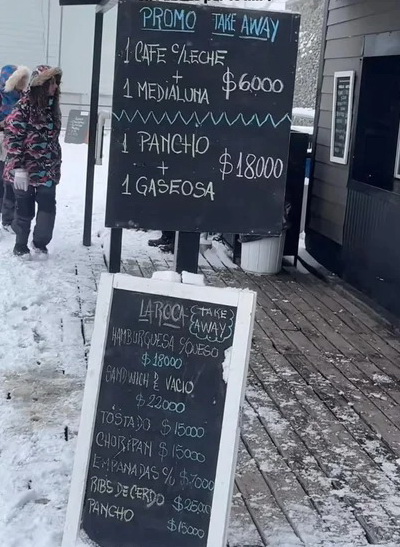 PROMO TAKE AWAY
1 CAFE C/LECHE
+
1 MEDIALUNA $6000
1 PANCHO
+ $18000
1 GASEOSA
LAROCA TAKE
AWAY
HAMBURGUESA
$18000
SANDWICH DE VACIO
$22000
TOSTADO $15000
CHORIPAN $15000
EMPANADAS C/U $7000
RIBS DE CERDO
PANCHO
$15000